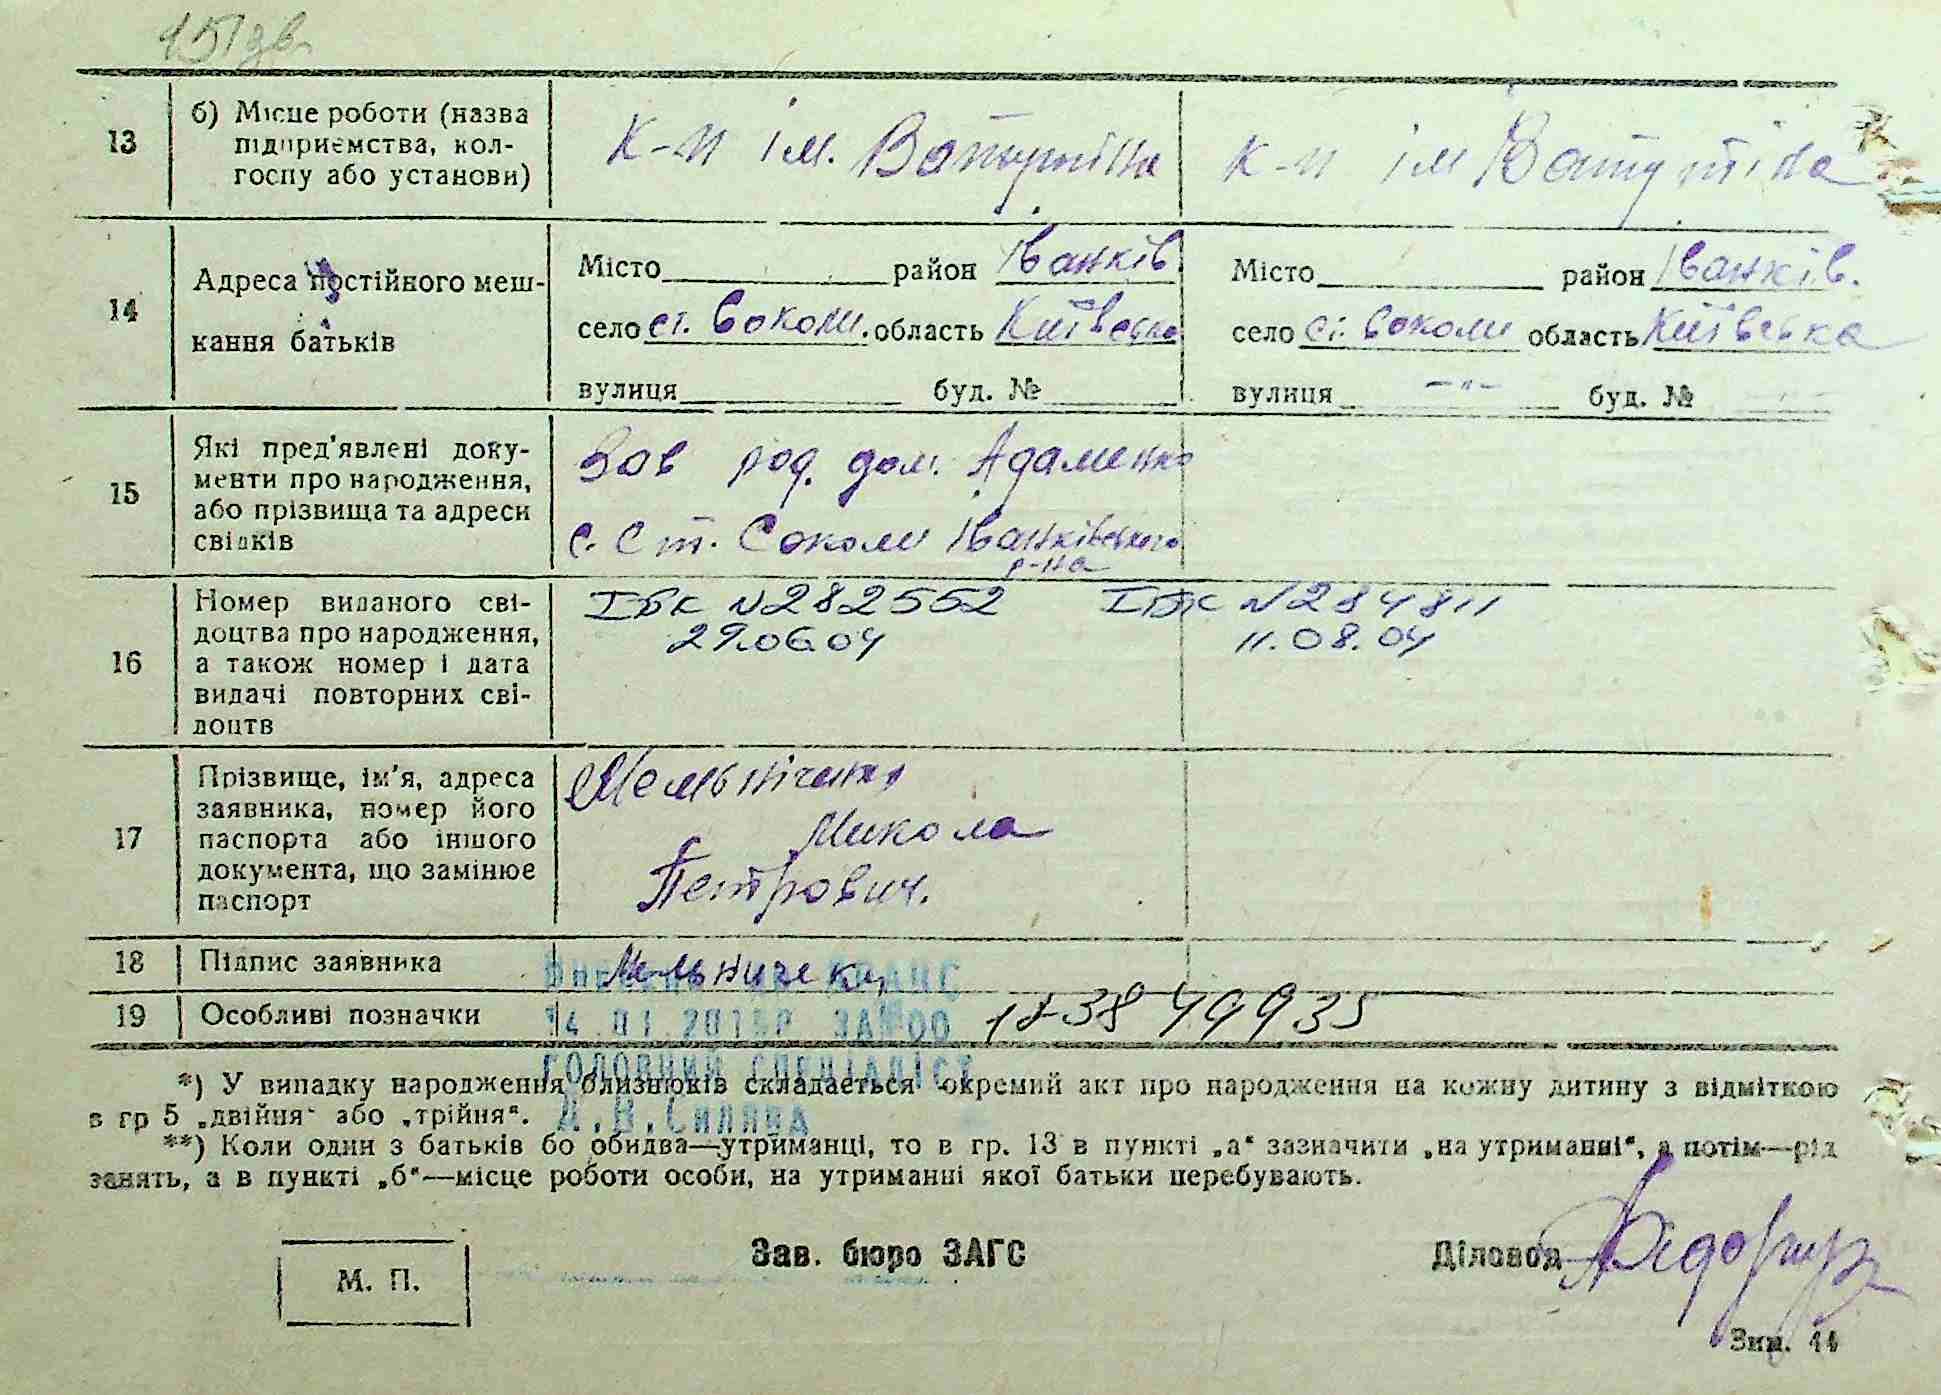 151зв.
13 б) Місце роботи (назва підприємства, колгоспу або установи) К-п ім. Ватутіна К-п ім Ватутіна
14 Адреса постійного мешкання батьків
Місто район Іванків. Місто район Іванків.
село ст. Соколи. область Київська село ст. Соколи область Київська
вулиця буд. № вулиця —"— буд. №
15 Які пред'явлені документи про народження, або прізвища та адреси свідків
Зав род. дом. Адаменко
с. Ст. Соколи Іванківського
р-на
16 Номер виданого свідоцтва про народження, а також номер і дата видачі повторних свідоцтв
ІБК N282552 ІБК N284811
29.06.04 11.08.04
17 Прізвище, ім'я, адреса заявника, номер його паспорта або іншого документа, що замінює паспорт
Мельніченко
Микола
Петрович.
18 Підпис заявника
19 Особливі позначки 14.01.2015Р ЗА №00
ГОЛОВНИЙ СПЕЦІАЛІСТ
*) У випадку народження близнюків складається окремий акт про народження на кожну дитину з відміткою
в гр 5 „двійня" або „трійня".
**) Коли один з батьків бо обидва—утриманці, то в гр. 13 в пункті „а" зазначити „на утриманні", а потім—рід
занять, а в пункті „б"—місце роботи особи, на утриманні якої батьки перебувають.
М. П. Зав. бюро ЗАГС Діловод
Зим. 44